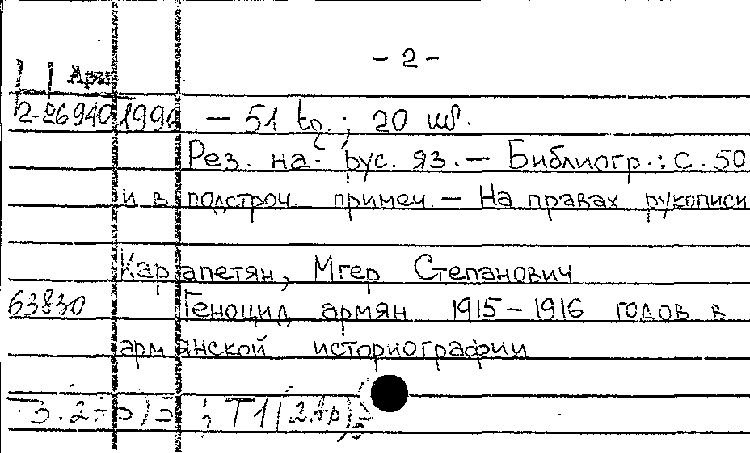 - 2 -
Арм
2-26940 1990 – 51 էջ ; 20 սմ.
Рез. на рус. яз. – Библиогр.: с. 50
и в подстроч. примеч. – На правах рукописи
Карапетян, Мгер Степанович
63830 Геноцид армян 1915-1916 годов в
армянской историографии
Т1(2Ар)